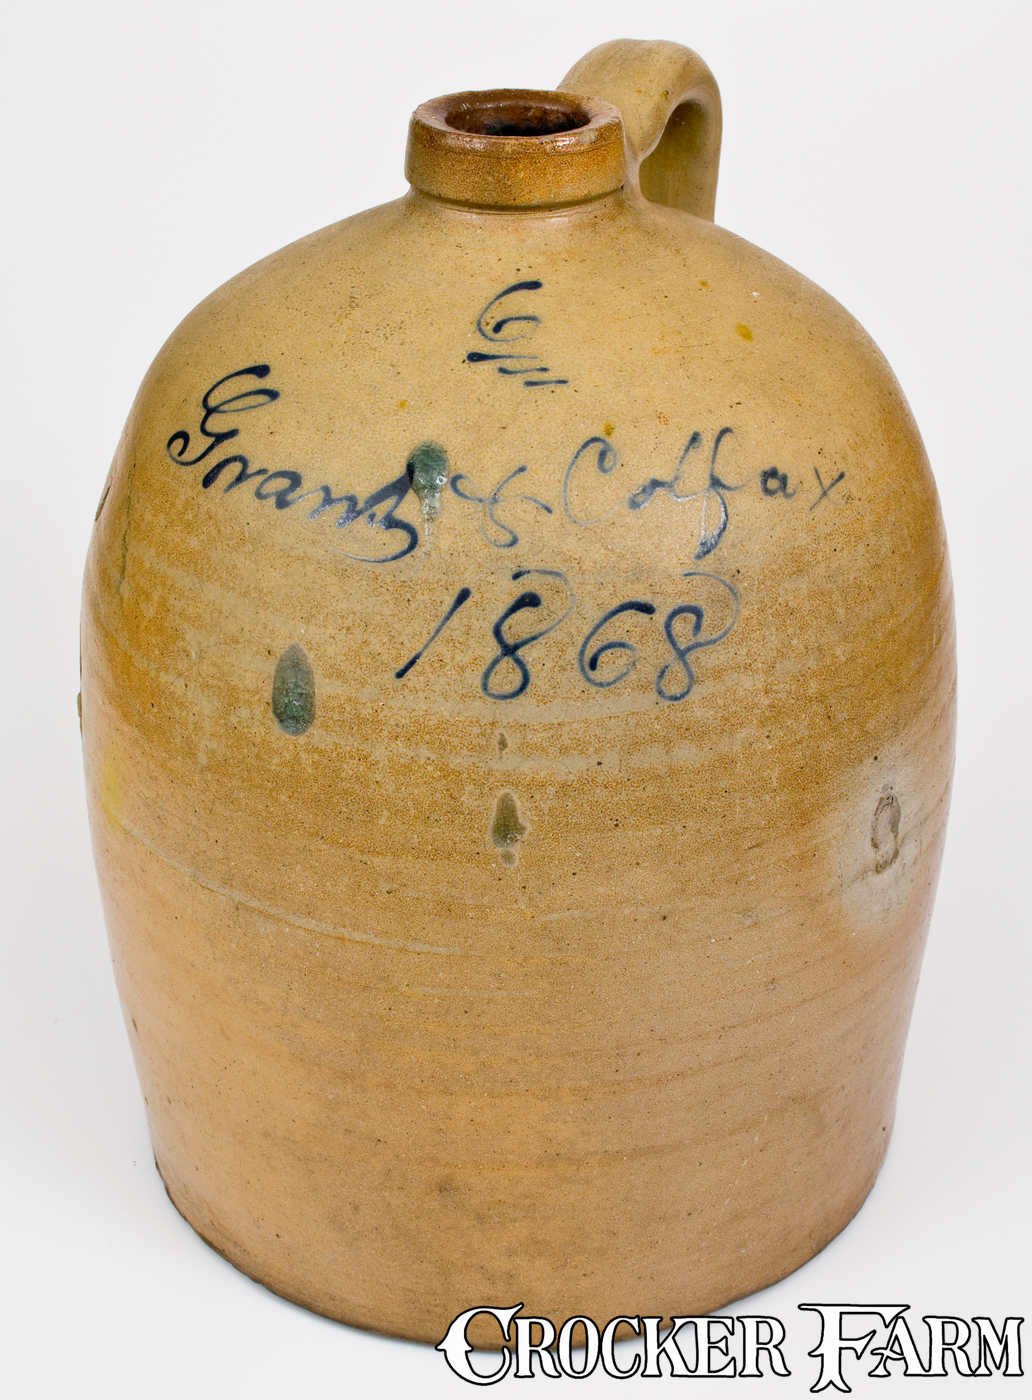 6
Grant & Colfax
1868
CROCKER FARM